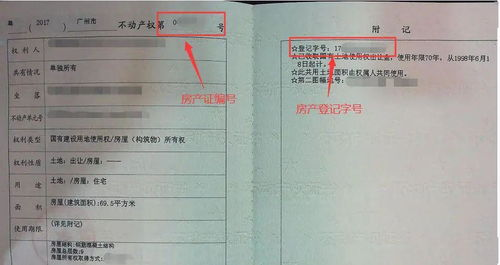 粤 (2017) 广州市 不动产权第 0 号
权利人
共有情况 单独所有
坐落
不动产单元号
权利类型 国有建设用地使用权/房屋(构筑物)所有权
权利性质 土地:出让/房屋:——
用途 土地:/房屋:住宅
面积 房屋(建筑面积):69.5平方米
使用期限 (详见附记)
房屋结构:钢筋混凝土结构
房屋总层数:9
房屋所有权取得方式:
房产证编号
附记
☆登记字号:17
☆已收取国有土地使用权出让金,使用年限70年,从1998年6月1
8日起计。
☆此共用土地面积由权属人共同使用。
☆第二图幅地号:
房产登记字号